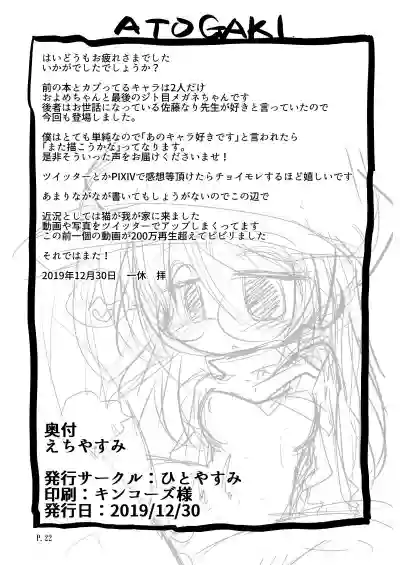 ATOGAKI
はいどうもお疲れさまでした
いかがでしたでしょうか？
前の本とカブってるキャラは2人だけ
およめちゃんと最後のジト目メガネちゃんです
後者はお世話になっている佐藤なり先生が好きと言っていたので
今回も登場しました。
僕はとても単純なので「あのキャラ好きです」と言われたら
「また描こうかな」ってなります。
是非そういった声をお届けくださいませ！
ツイッターとかPIXIVで感想等頂けたらチョイモレするほど嬉しいです
あまりながなが書いてもしょうがないのでこの辺で
近況としては猫が我が家に来ました
動画や写真をツイッターでアップしまくってます
この前一個の動画が200万再生超えてビビりました
それではまた！
2019年12月30日　一休　拝
奥付
えちやすみ
発行サークル：ひとやすみ
印刷：キンコーズ様
発行日：2019/12/30
P.22